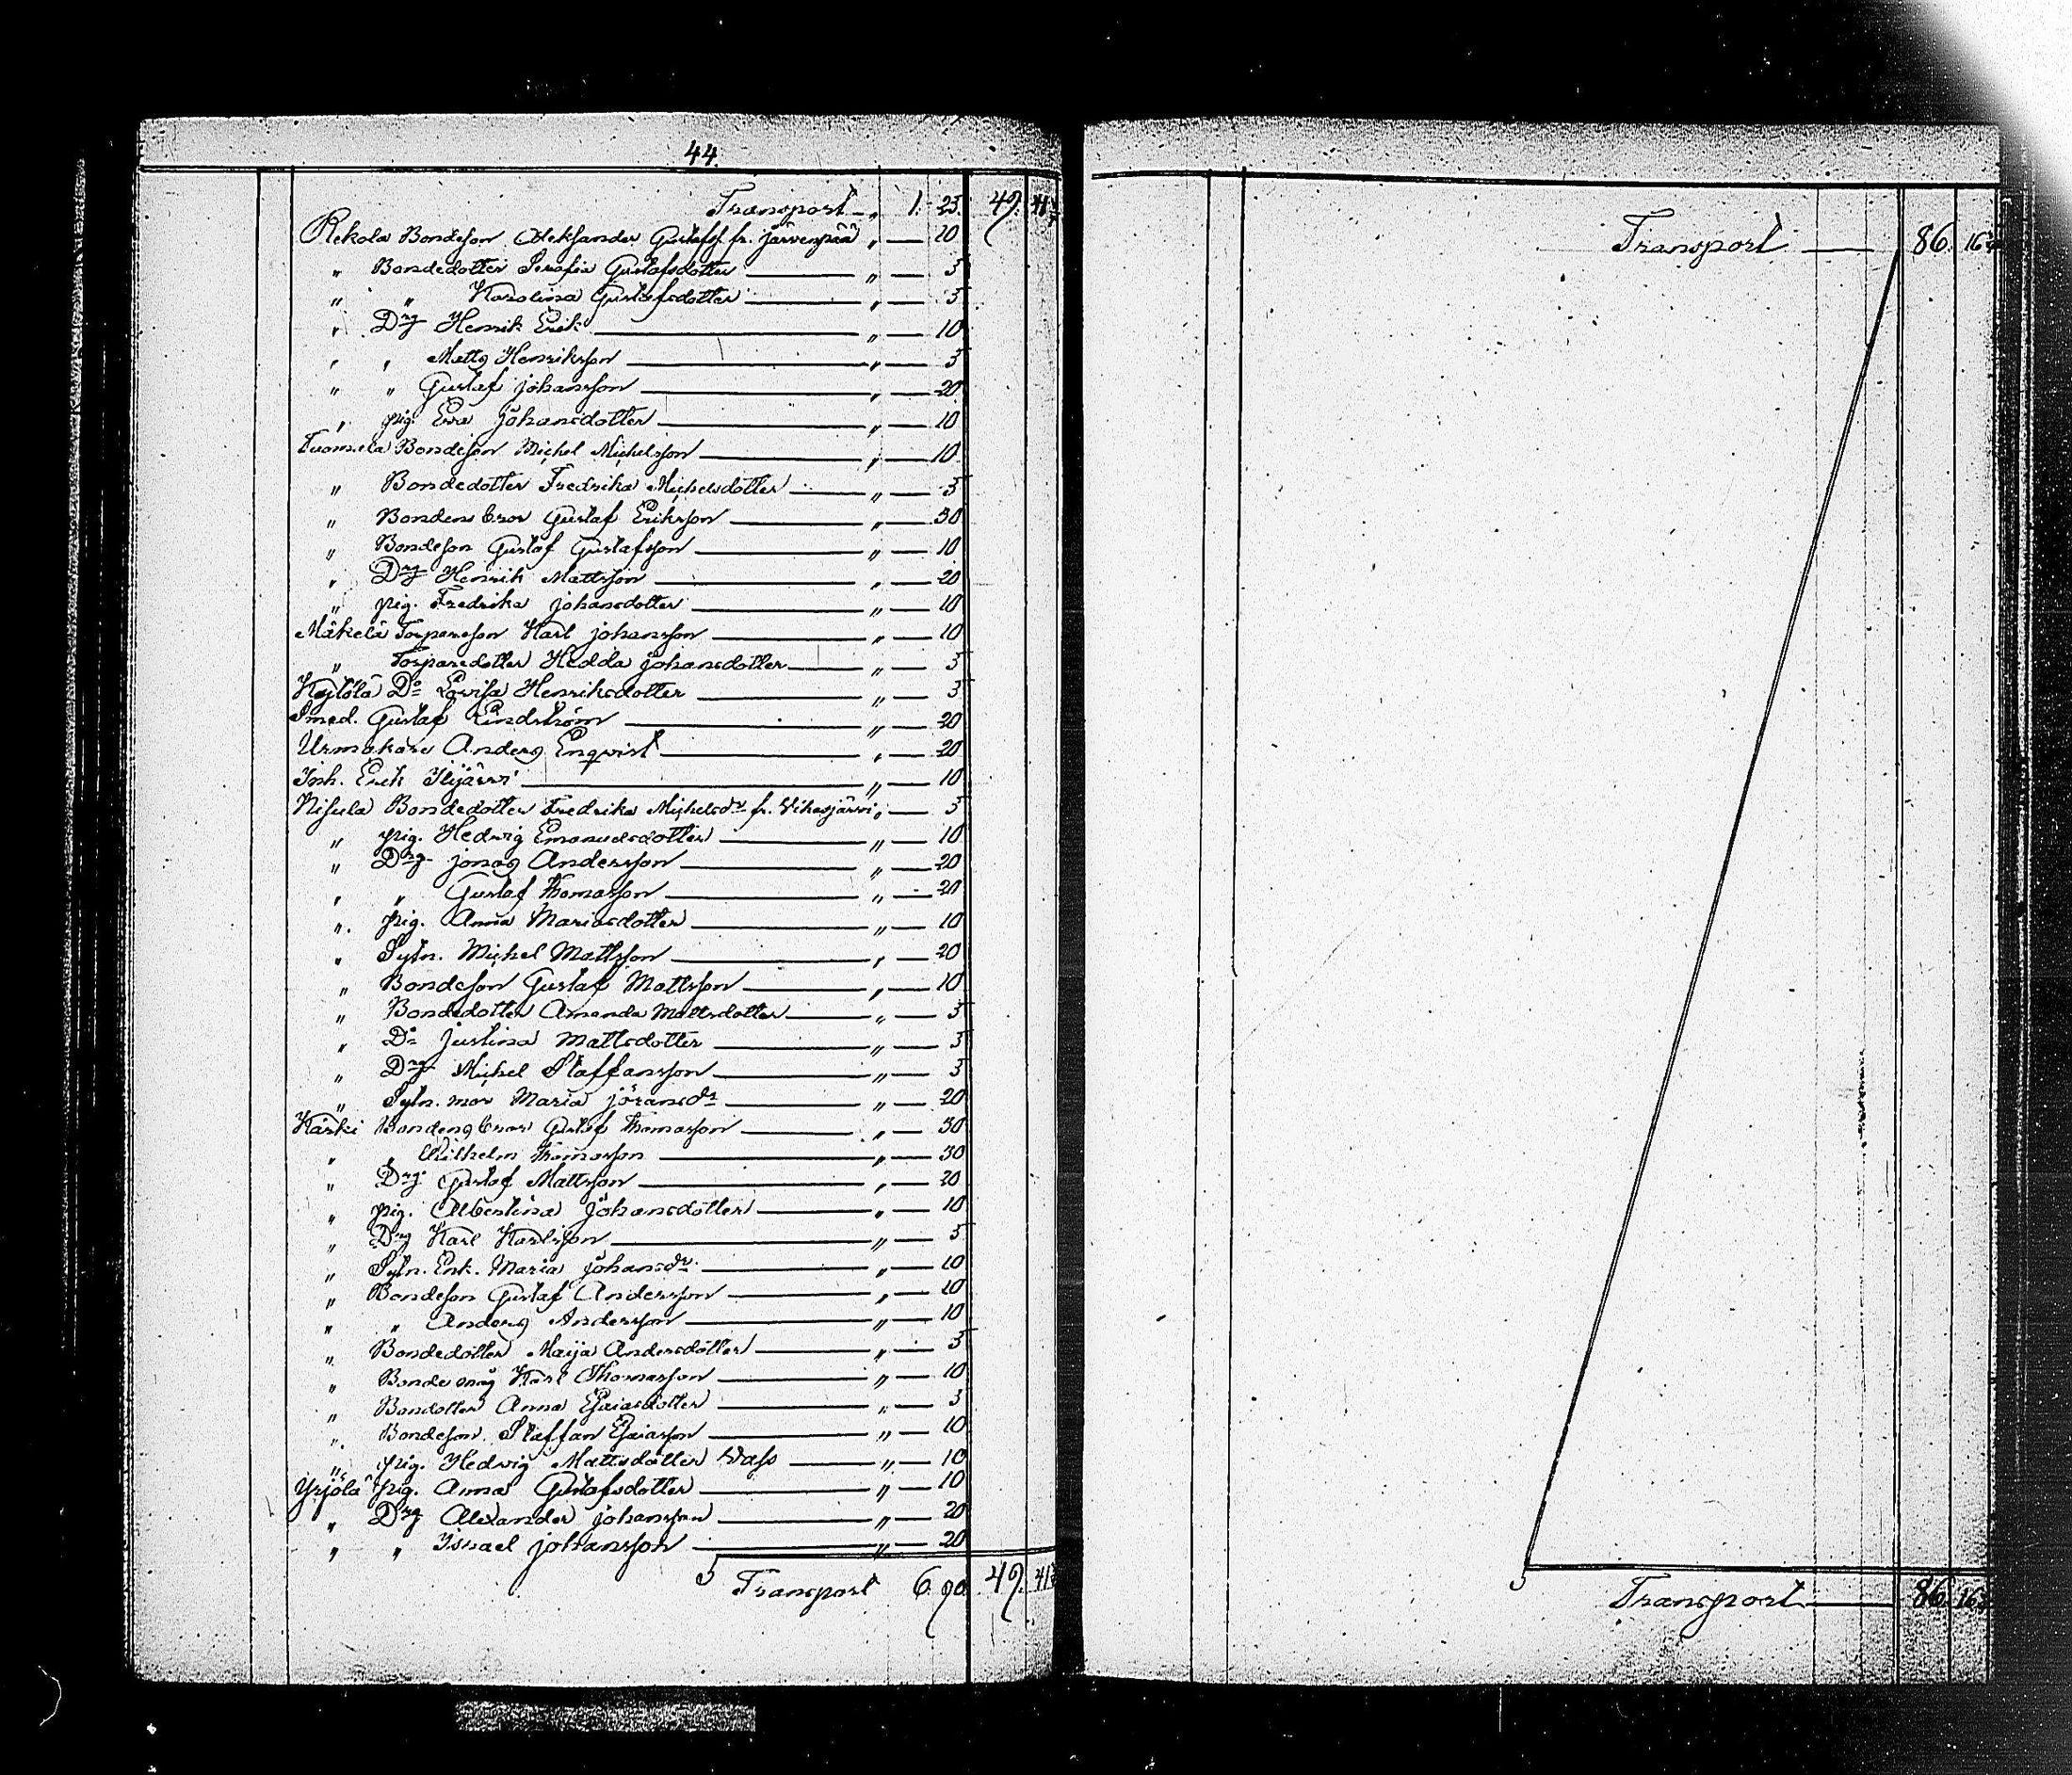 44.
Transport „ 1. 23. 49. 41
Rekola Bondeson Aleksander Gustafss. fr. Järvenpää „ — 20
„ Bondedotter Serafia Gustafsdotter „ — 5
„ „ Karolina Gustafsdotter „ — 5
„ Drg Henrik Erik „ — 10
„ „ Matts Henriksson „ — 5
„ „ Gustaf Johansson „ — 20
„ pig. Eva Johansdotter „ — 10
Tuomela Bondeson Michel Michelsson „ — 10
„ Bondedotter Fredrika Michelsdotter „ — 5
„ Bondens bror Gustaf Eriksson „ — 30
„ Bondeson Gustaf Gustafsson „ — 10
„ Drg Henrik Mattsson „ — 20
„ pig. Fredrika Johansdotter „ — 10
Mäkelä Torpareson Karl Johansson „ — 10
„ Torparedotter Hedda Johansdotter „ — 5
Kylölä Do Lovisa Henriksdotter „ — 5
Smed. Gustaf Lindström „ — 20
Urmakare Anders Enqvist „ — 20
Inh. Erik Ilijärvi „ — 10
Nisula Bondedotter Fredrika Michelsdr fr. Vihasjärvi „ — 5
„ pig. Hedvig Emanuelsdotter „ — 10
„ Drg Jonas Andersson „ — 20
„ „ Gustaf Thomasson „ — 20
„ pig. Anna Mariasdotter „ — 10
„ Sytn. Michel Mattsson „ — 20
„ Bondeson Gustaf Mattsson „ — 10
„ Bondedotter Amanda Mattsdotter „ — 5
„ Do Justina Mattsdotter „ — 5
„ Drg Michel Staffansson „ — 5
„ Sytn. mor Maria Jöransdr „ — 20
Kärki Bondens bror Gustaf Thomasson „ — 30
„ „ Wilhelm Thomasson „ — 30
„ Drg Gustaf Mattsson „ — 20
„ pig. Albertina Johansdotter „ — 10
„ Drg Karl Karlsson „ — 5
„ Sytn. Enk. Maria Johansdr „ — 10
„ Bondeson Gustaf Andersson „ — 10
„ „ Anders Andersson „ — 10
„ Bondedotter Maija Andersdotter „ — 5
„ Bonde måg Karl Thomasson „ — 10
„ Bondotter Anna Esaiasdotter „ — 5
„ Bondeson Staffan Esaiasson „ — 10
„ pig. Hedvig Mattsdotter Vass „ — 10
Yrjölä pig. Anna Gustafsdotter „ — 10
„ Drg Alexander Johansson „ — 20
„ „ Isrrael Johansson „ — 20
Transport 6. 90. 49. 41
Transport — 86. 16
Transport — 86. 16